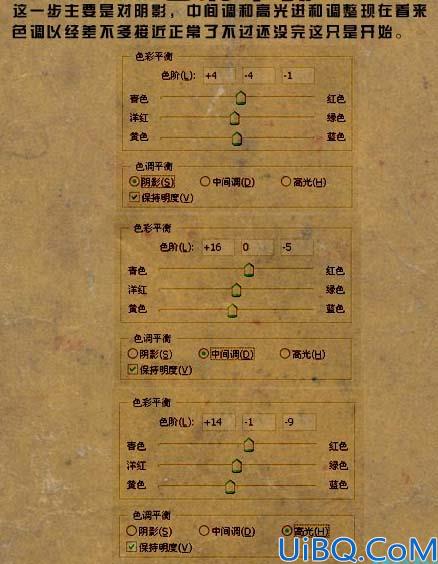 这一步主要是对阴影，中间调和高光进和调整现在看来
色调以经差不多接近正常了不过还没完这只是开始。
色彩平衡
色阶(L): +4 -4 -1
青色 红色
洋红 绿色
黄色 蓝色
色调平衡
阴影(S) 中间调(D) 高光(H)
保持明度(V)
色彩平衡
色阶(L): +16 0 -5
青色 红色
洋红 绿色
黄色 蓝色
色调平衡
阴影(S) 中间调(D) 高光(H)
保持明度(V)
色彩平衡
色阶(L): +14 -1 -9
青色 红色
洋红 绿色
黄色 蓝色
色调平衡
阴影(S) 中间调(D) 高光(H)
保持明度(V)
UiBQ.CoM